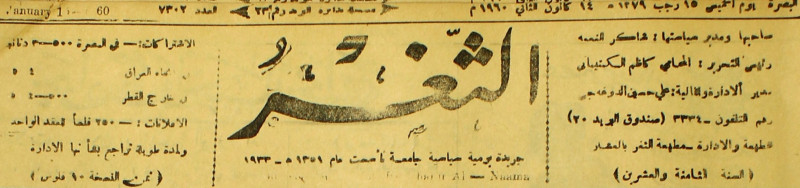 البصرة يوم الخميس ١٥ رجب ١٣٧٩ هـ ١٤ كانون الثاني ١٩٦٠ م
العدد ٧٣٠٢
January 1 60
صاحبها ومدير سياستها : شاكر النعمه
رئيس التحرير : المحامي كاظم
مدير الادارة والمالية : علي حسين
رقم التلفون – ٣٣٣٤ ( صندوق البريد ٢٠ )
مطبعة والادارة – مطبعة الثغر بالعشار
( السنة الثامنة والعشرين )
الثغر
جريدة يومية سياسية جامعة تأسست عام ١٣٥١ هـ - ١٩٣٣
Al - Naama
الاشتراكات : — في البصرة ٥٠٠-٣ دنانير
انحاء العراق
خارج القطر ٥٠٠-٤
الاعلانات : — ٢٥٠ فلساً للعقد الواحد
ولمدة طويلة تراجع بشأنها الادارة
( ثمن النسخة ١٠ فلوس )